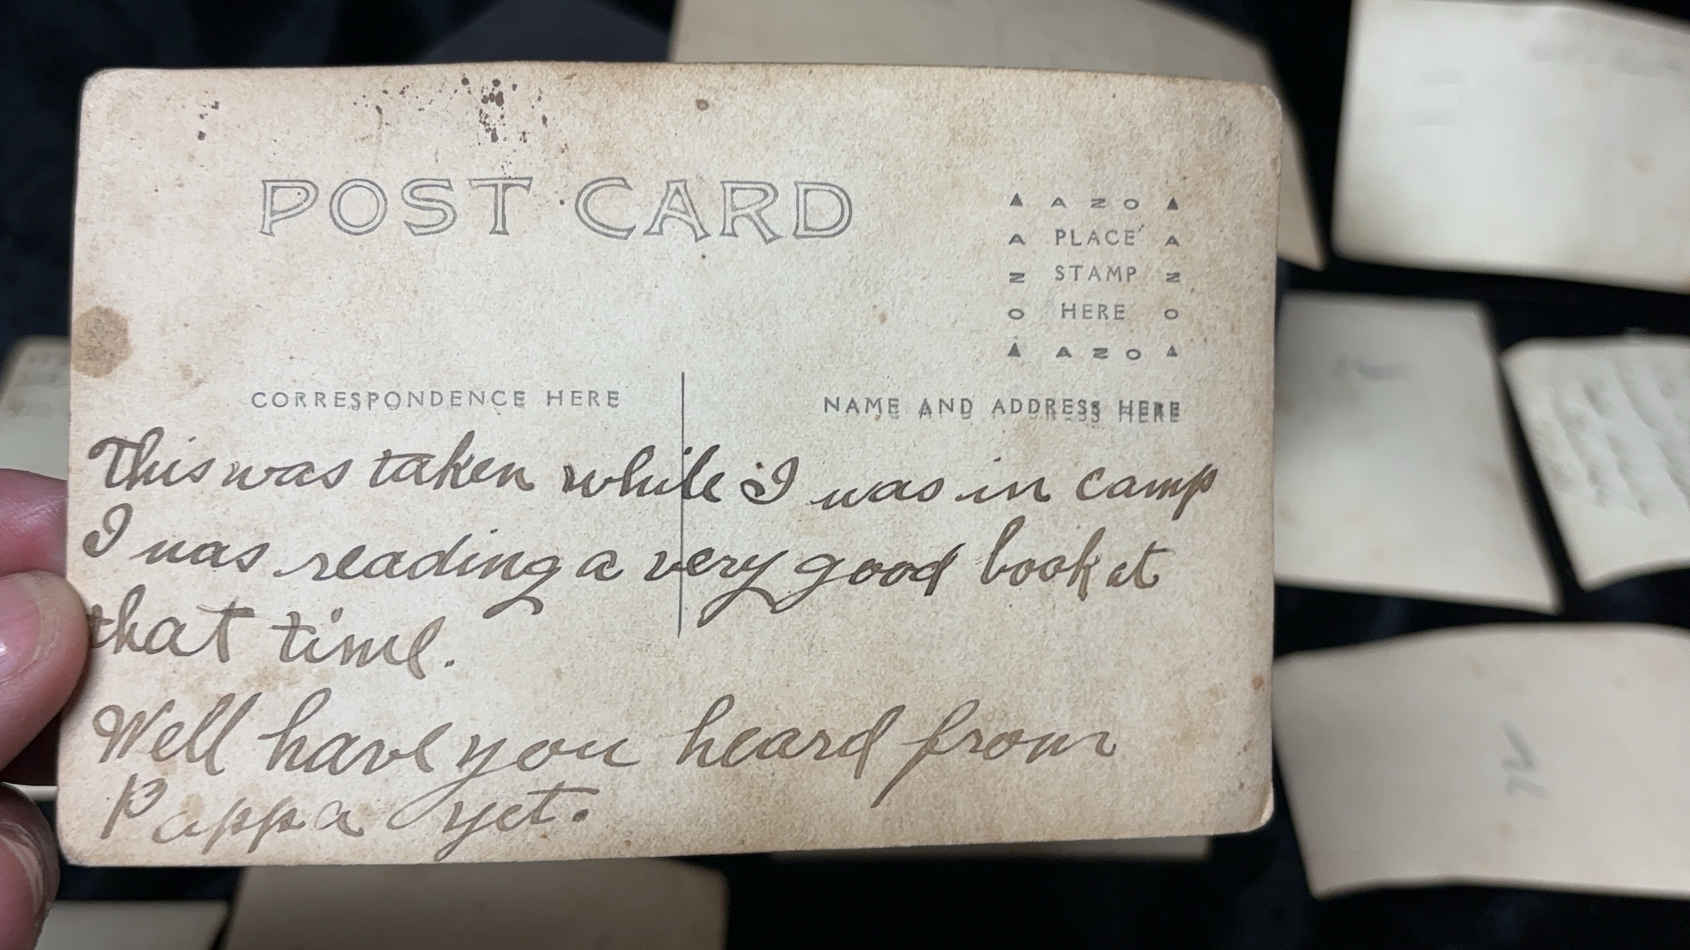 POST CARD
▲ AZO ▲
A PLACE A
N STAMP N
O HERE O
▲ AZO ▲
CORRESPONDENCE HERE
NAME AND ADDRESS HERE
This was taken while I was in camp
I was reading a very good book at
that time.
Well have you heard from
Pappa yet.